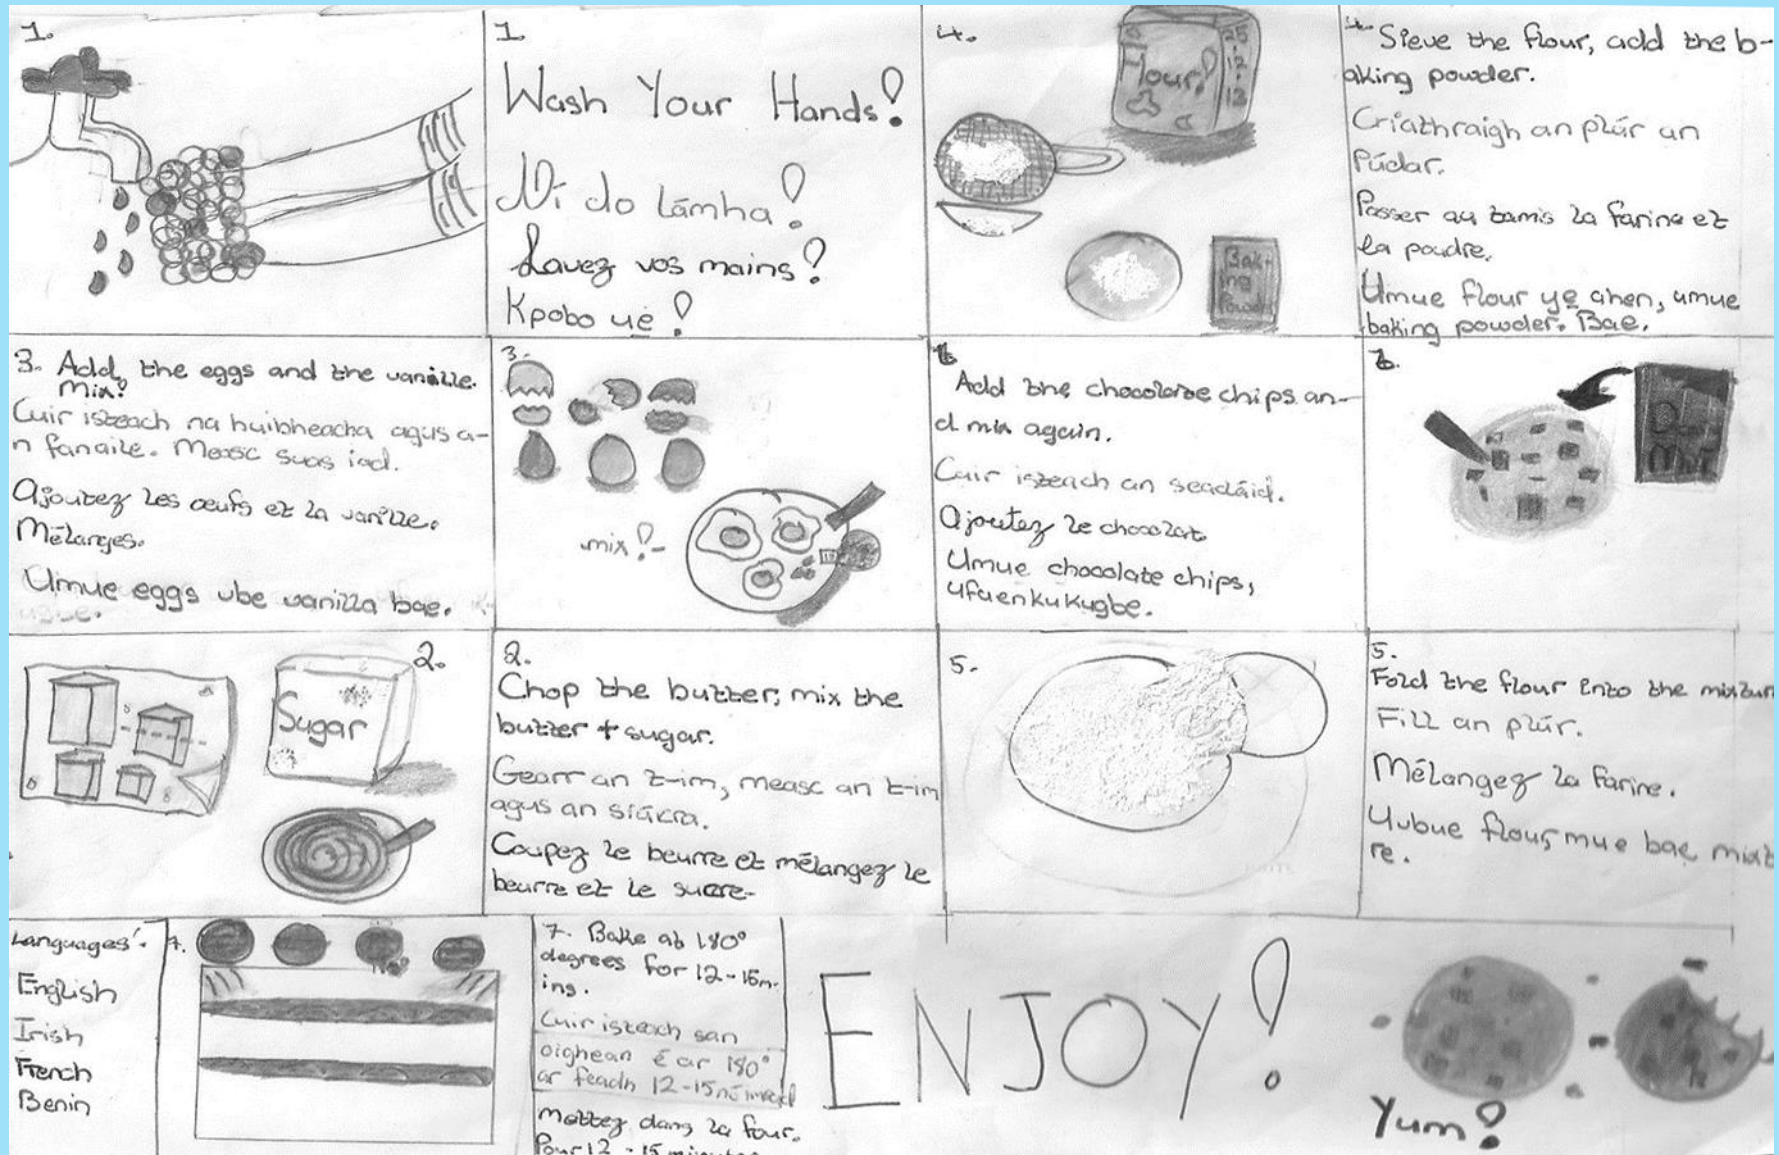 1.
1.
Wash Your Hands!
Ní do lámha!
Lavez vos mains!
Kpobo ue!
4.
Flour!
25
12
13
Bak-
ing
Powder
4. Sieve the flour, add the b-
aking powder.
Criathraigh an plúr an
Púdar.
Passer au tamis la farine et
la poudre.
Umue flour ye ahen, umue
baking powder. Bae.
3. Add the eggs and the vanille.
Mix!
Cuir isteach na huibheacha agus a-
n fanaile. Measc suas iad.
Ajoutez les œufs et la vanille.
Mélanges.
Umue eggs ube vanilla bae.
3.
mix!-
6
Add the chocolate chips an-
d mix again.
Cuir isteach an seacláid.
Ajoutez le chocolat.
Umue chocolate chips,
ufuenkukugbe.
6.
2.
Sugar
2.
Chop the butter, mix the
butter + sugar.
Gearr an t-im, measc an t-im
agus an siúcra.
Coupez le beurre et mélangez le
beurre et le sucre-
5.
5.
Fold the flour into the mixtur
Fill an plúr.
Mélangez la farine.
Uubue flour, mue bae mixt
re.
Languages:
English
Irish
French
Benin
7.
7. Bake at 180°
degrees for 12-15m-
ins.
Cuir isteach san
oighean é ar 180°
ar feadh 12-15 nóiméad
Mettez dans la four.
Pour 12 - 15 minutes
ENJOY!
Yum!